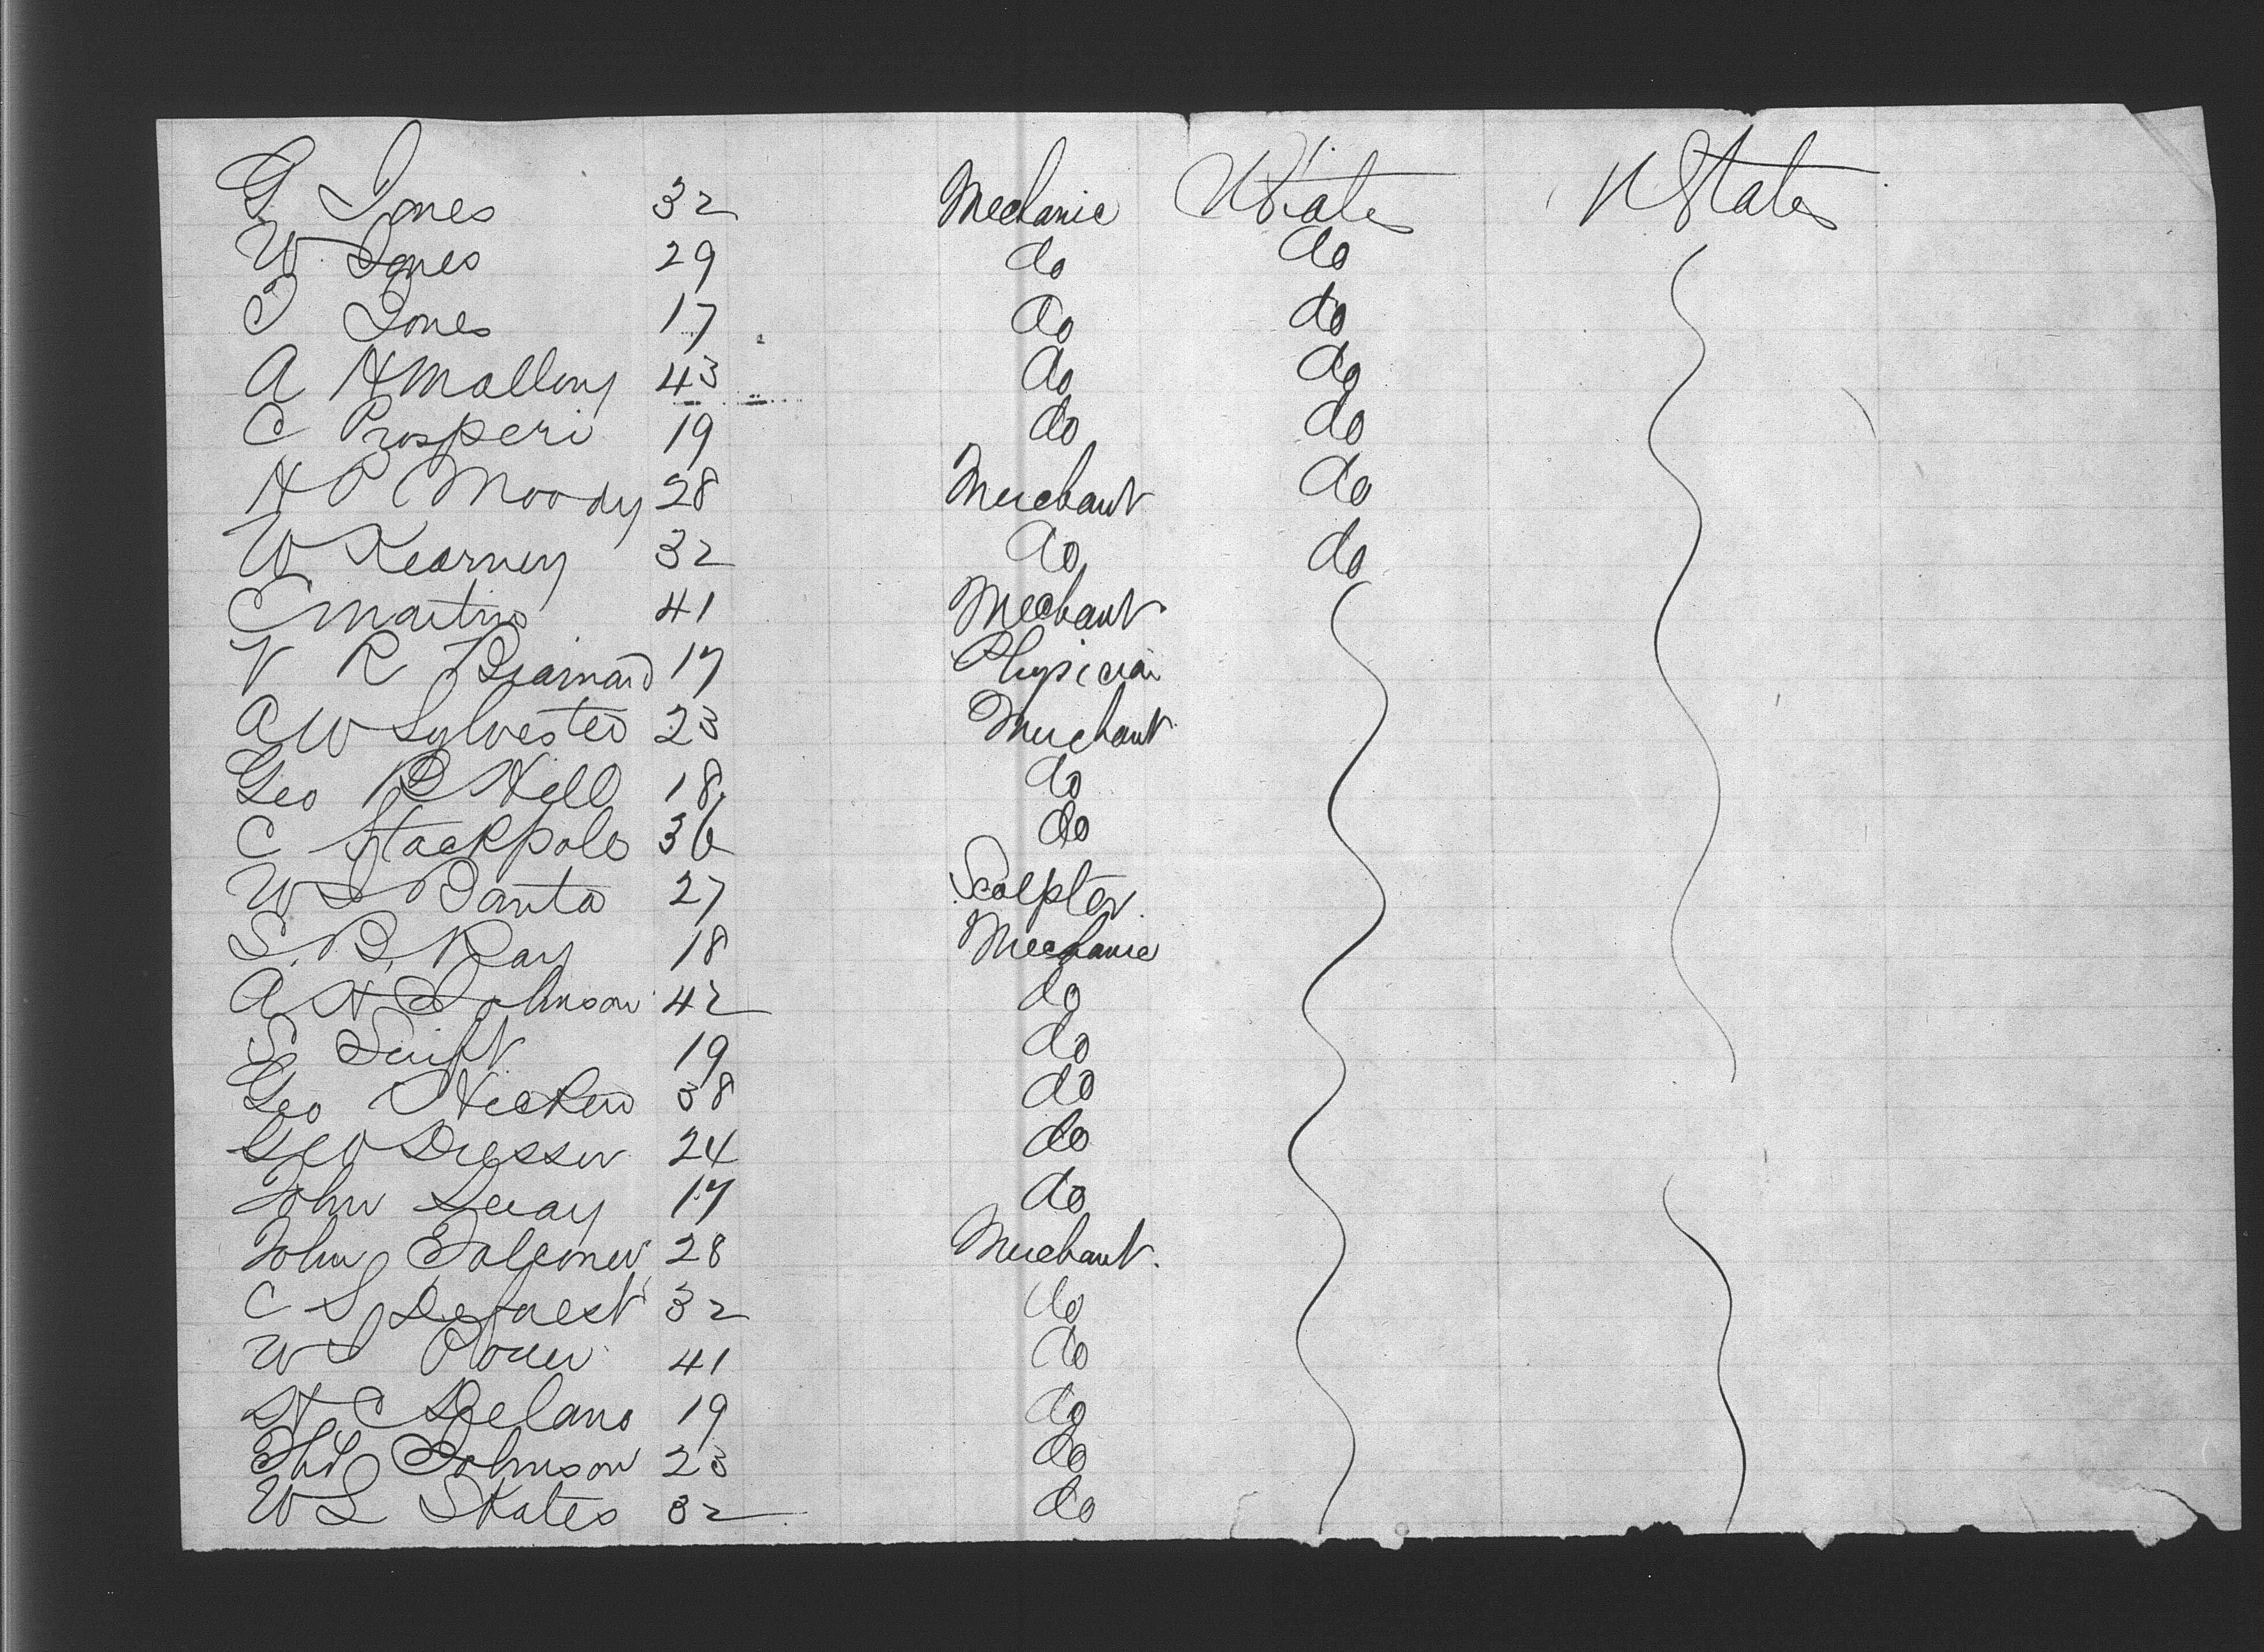 G Jones 32 Mechanic U States U States
W Jones 29 do do
T Jones 17 do do
A H Mallory 43 do do
C Prosperi 19 do do
H P Moody 28 Merchant do
W Kearney 32 do do
C Martin 41 Mechant
V R Brainard 17 Physician
A W Sylvester 23 Merchant
Geo B Hill 18 do
C Stackpole 36 do
W I Panta 27 Scolptor
S. B. Ray 18 Mechanic
A H Johnson 42 do
S Swift 19 do
Geo 38 do
Geo Dresser 24 do
John 17 do
John Falconer 28 Merchant.
C S Deforest 32 do
W I 41 do
H C Delano 19 do
Johnson 23 do
W L Skates 32 do